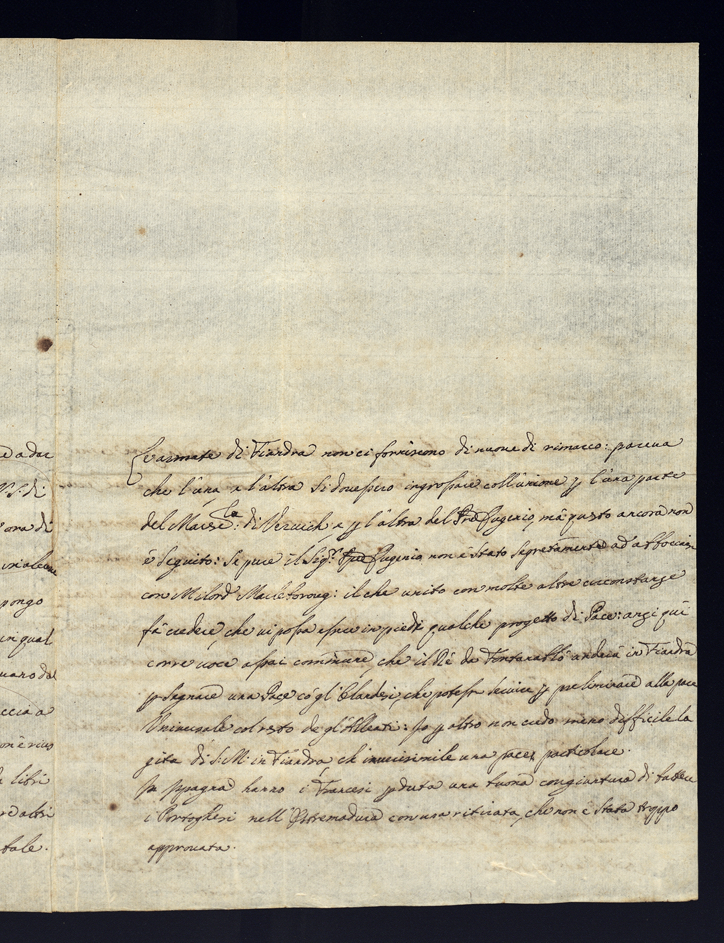 e a dar
V.S. di
ora di
pongo
in qual
eccia a
libri
altri
tale.
L'armate di Fiandra non ci forniscono di nuove di rimarco: pareva
che l'una e l'altra si dovessero ingrossare coll'unione p l'una parte
del Maresc.lo di Vervich e p l'altra del Pre Eugenio, mà questo ancora non
è seguito: se pure il Sig.r Pre Eugenio non è stato segretamente ad abboccarsi
con Milord Marleboroug: il che unito con molte altre circonstanze
fà credere, che vi possa essere in piedi qualche progetto di Pace: anzi quì
corre voce assai commune, che il Rè da Fontanablò anderà in Fiandra
p segnare una Pace cō gl'Olandesi, che potesse servire p preliminare alla pace
Universale col resto de gl'Alleati: Io p altro non credo meno difficile la
gita di S.M. in Fiandra che inverisimile una pace particolare.
In Spagna hanno i Francesi pduta una buona congiuntura di battere
i Portoghesi nell'Estremadura con una ritirata, che non è stata troppo
approvata.